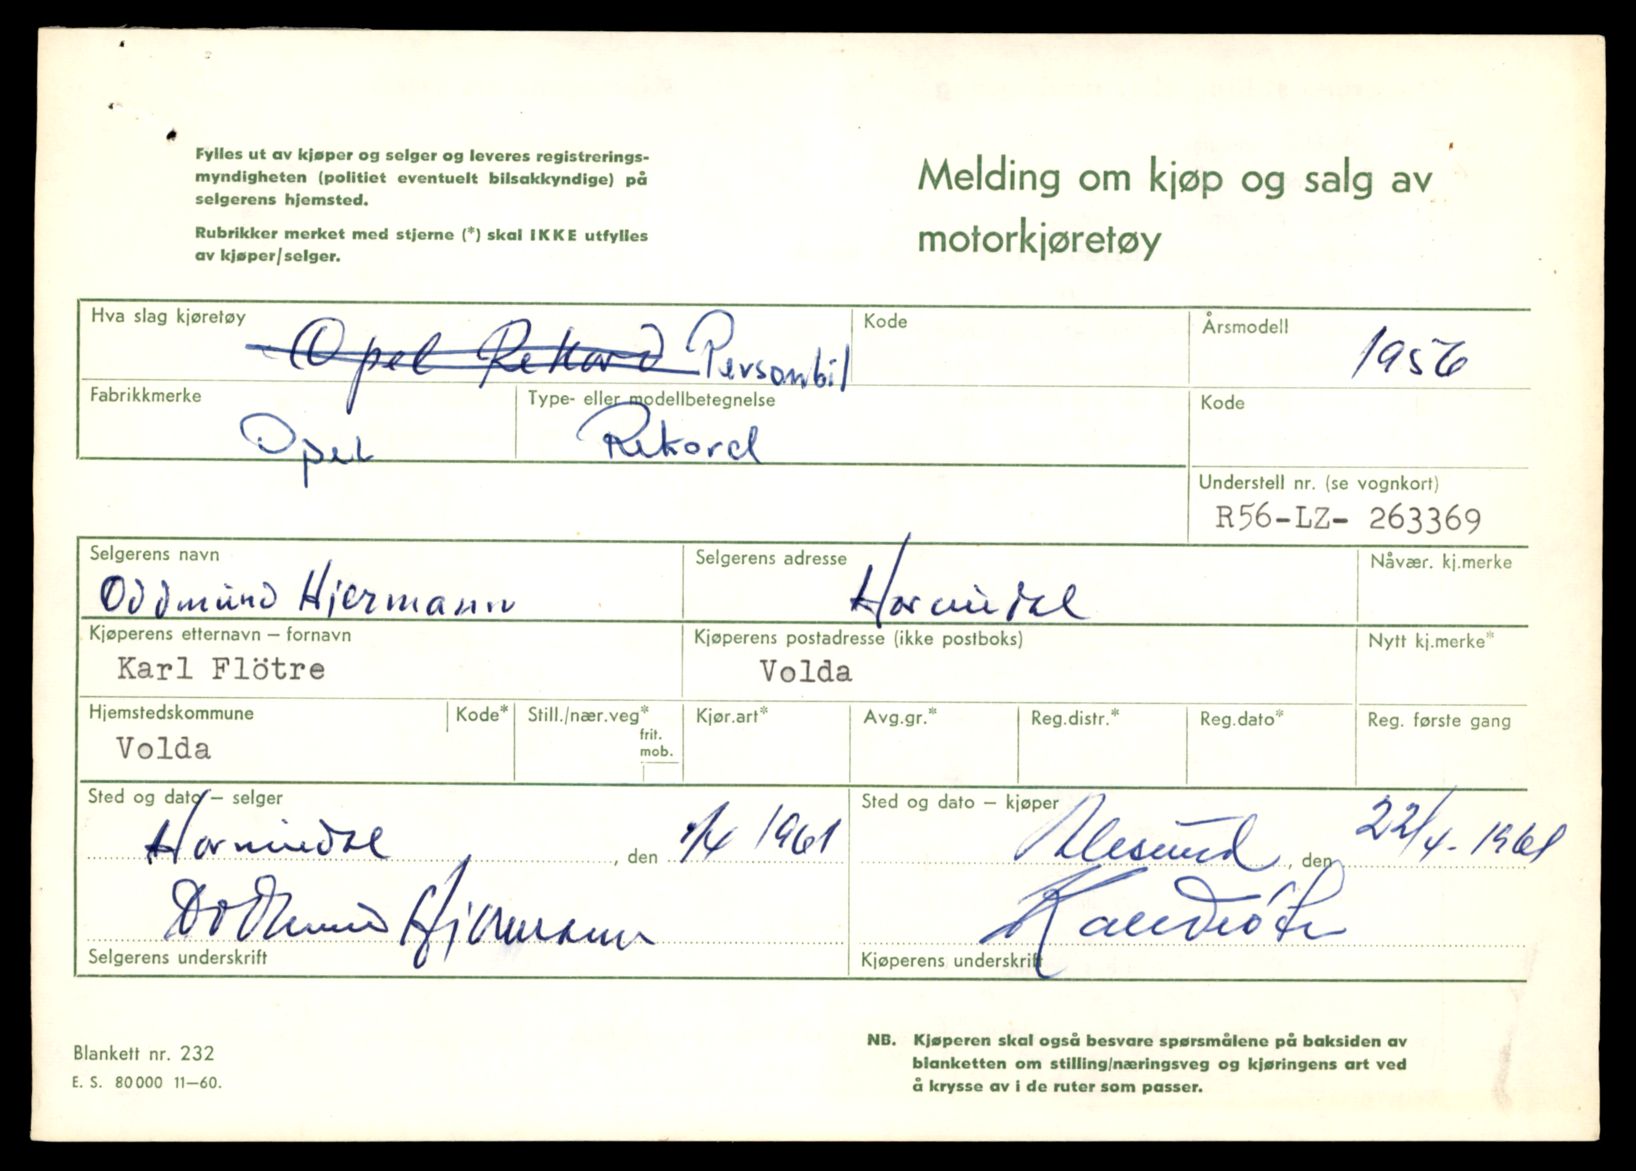 Fylles ut av kjøper og selger og leveres registrerings-
myndigheten (politiet eventuelt bilsakkyndige) på
selgerens hjemsted.
Rubrikker merket med stjerne (*) skal IKKE utfylles
av kjøper/selger.
Melding om kjøp og salg av
motorkjøretøy
Hva slag kjøretøy
Opel Rekord Personbil
Kode
Årsmodell
1956
Fabrikkmerke
Opel
Type- eller modellbetegnelse
Rekord
Kode
Understell nr. (se vognkort)
R56-LZ- 263369
Selgerens navn
Oddmund Hjermann
Selgerens adresse
Hornindal
Nåvær. kj.merke
Kjøperens etternavn – fornavn
Karl Flötre
Kjøperens postadresse (ikke postboks)
Volda
Nytt kj.merke*
Hjemstedskommune
Volda
Kode*
Still./nær.veg*
frit.
mob.
Kjør.art*
Avg.gr.*
Reg.distr.*
Reg.dato*
Reg. første gang
Sted og dato – selger
Hornindal , den 1/4 1961
Oddmund Hjermann
Selgerens underskrift
Sted og dato – kjøper
Ålesund , den 22/4-1961
Karl Fløtre
Kjøperens underskrift
Blankett nr. 232
E. S. 80000 11–60.
NB. Kjøperen skal også besvare spørsmålene på baksiden av
blanketten om stilling/næringsveg og kjøringens art ved
å krysse av i de ruter som passer.